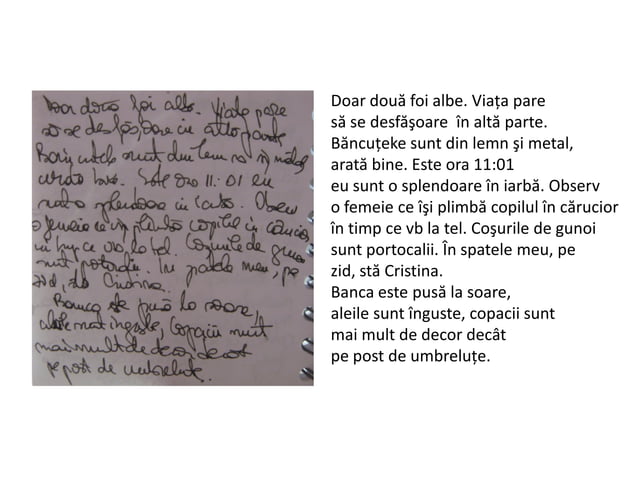 Doar două foi albe. Viața pare
să se desfășoare in altă parte
Băncuțele sunt din lemn și metal,
arată bine. Este ora 11:01 eu
sunt o splendoare în iarbă. Observ
o femeie ce își plimbă copilul în cărucior,
în timp ce vb. la tel. Coșurile de gunoi
sunt portocalii. În spatele meu, pe
zid, stă Cristina.
Banca este pusă la soare,
aleile sunt înguste, copacii sunt
mai mult de decor decât
pe post de umbreluțe.
Doar două foi albe. Viața pare
să se desfăşoare în altă parte.
Băncuțeke sunt din lemn şi metal,
arată bine. Este ora 11:01
eu sunt o splendoare în iarbă. Observ
o femeie ce îşi plimbă copilul în cărucior
în timp ce vb la tel. Coşurile de gunoi
sunt portocalii. În spatele meu, pe
zid, stă Cristina.
Banca este pusă la soare,
aleile sunt înguste, copacii sunt
mai mult de decor decât
pe post de umbreluțe.